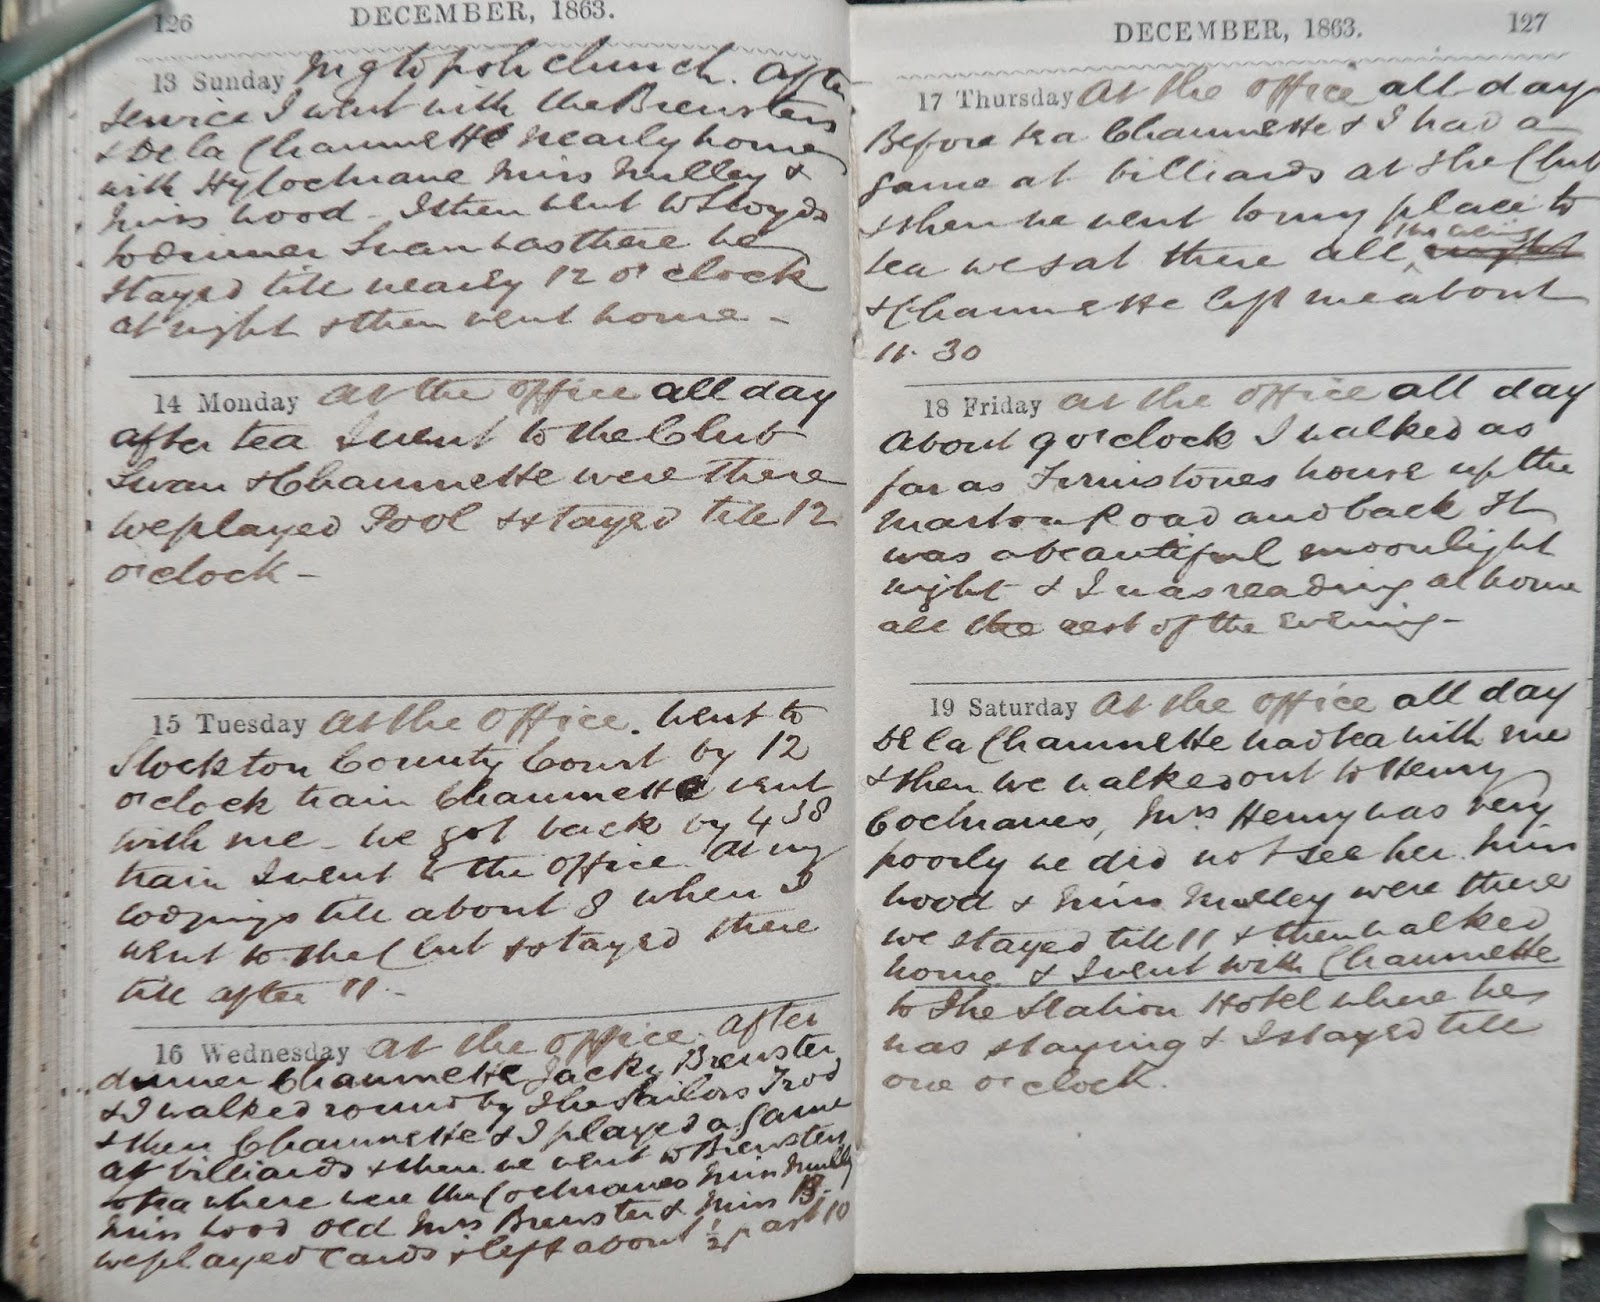 126 DECEMBER, 1863.
13 Sunday Mg to psh church. After
service I went with the Brewsters
& De la Chaumette nearly home
with Hy Cochrane Miss Mulley &
Miss Wood - I then went to Lloyds
to dinner Swan was there he
stayed till nearly 12 o'clock
at night & then went home -
14 Monday At the office all day
after tea I went to the Club
Swan & Chaumette were there
we played Pool & stayed till 12
o'clock -
15 Tuesday At the office. Went to
Stockton County Court by 12
o'clock train Chaumette went
with me - we got back by 4 38
train I went to the office. At my
lodgings till about 8 when I
went to the Club & stayed there
till after 11 -
16 Wednesday At the office. After
dinner Chaumette Jacky Brewster
& I walked round by the Sailors Trod
& then Chaumette & I played a game
at billiards & then we went to Brewsters
to tea where were the Cochranes Miss Mulley
Miss Wood old Mrs Brewster & Miss B.
we played cards & left about ½ past 10
DECEMBER, 1863. 127
17 Thursday At the office all day
Before tea Chaumette & I had a
game at billiards at the Club
& then we went to my place to
tea we sat there all the evening night
& Chaumette left me about
11.30
18 Friday At the office all day
About 9 o'clock I walked as
far as Firmstones house up the
Marton Road and back It
was a beautiful moonlight
night & I was reading at home
all the rest of the evening -
19 Saturday At the office all day
De la Chaumette had tea with me
& then we walked out to Henry
Cochranes, Mrs Henry was very
poorly we did not see her. Miss
Wood & Miss Mulley were there
we stayed till 11 & then walked
home & I went with Chaumette
to the Station Hotel where he
was staying & I stayed till
one o'clock.